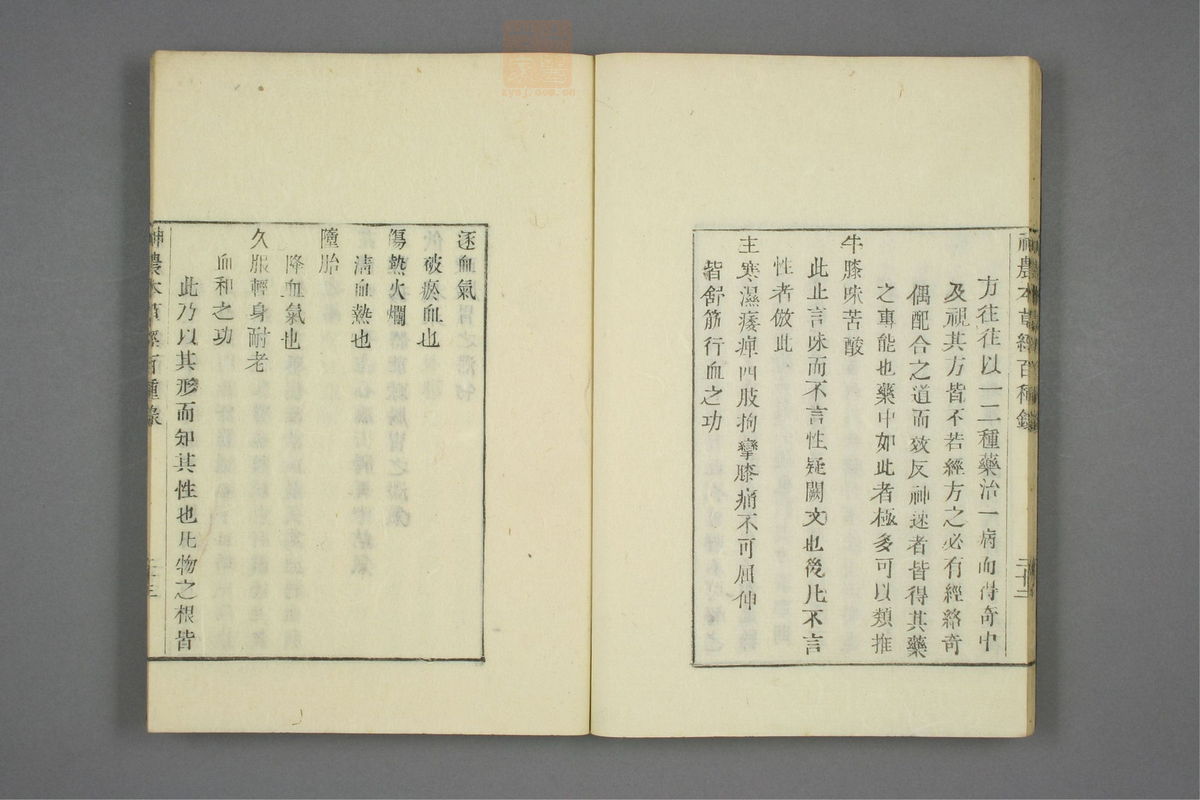 神農本草經百種錄
方往往以一二種藥治一病而得奇中
及視其方皆不若經方之必有經絡奇
偶配合之道而效反神速者皆得其藥
之專能也藥中如此者極多可以類推
牛膝味苦酸
此止言味而不言性疑闕文也後凡不言
性者倣此
主寒濕痿痺四肢拘攣膝痛不可屈伸
皆舒筋行血之功
逐血氣
破瘀血也
傷熱火爛
清血熱也
墮胎
降血氣也
久服輕身耐老
血和之功
此乃以其形而知其性也凡物之根皆
神農本草經百種錄
zysj.com.cn